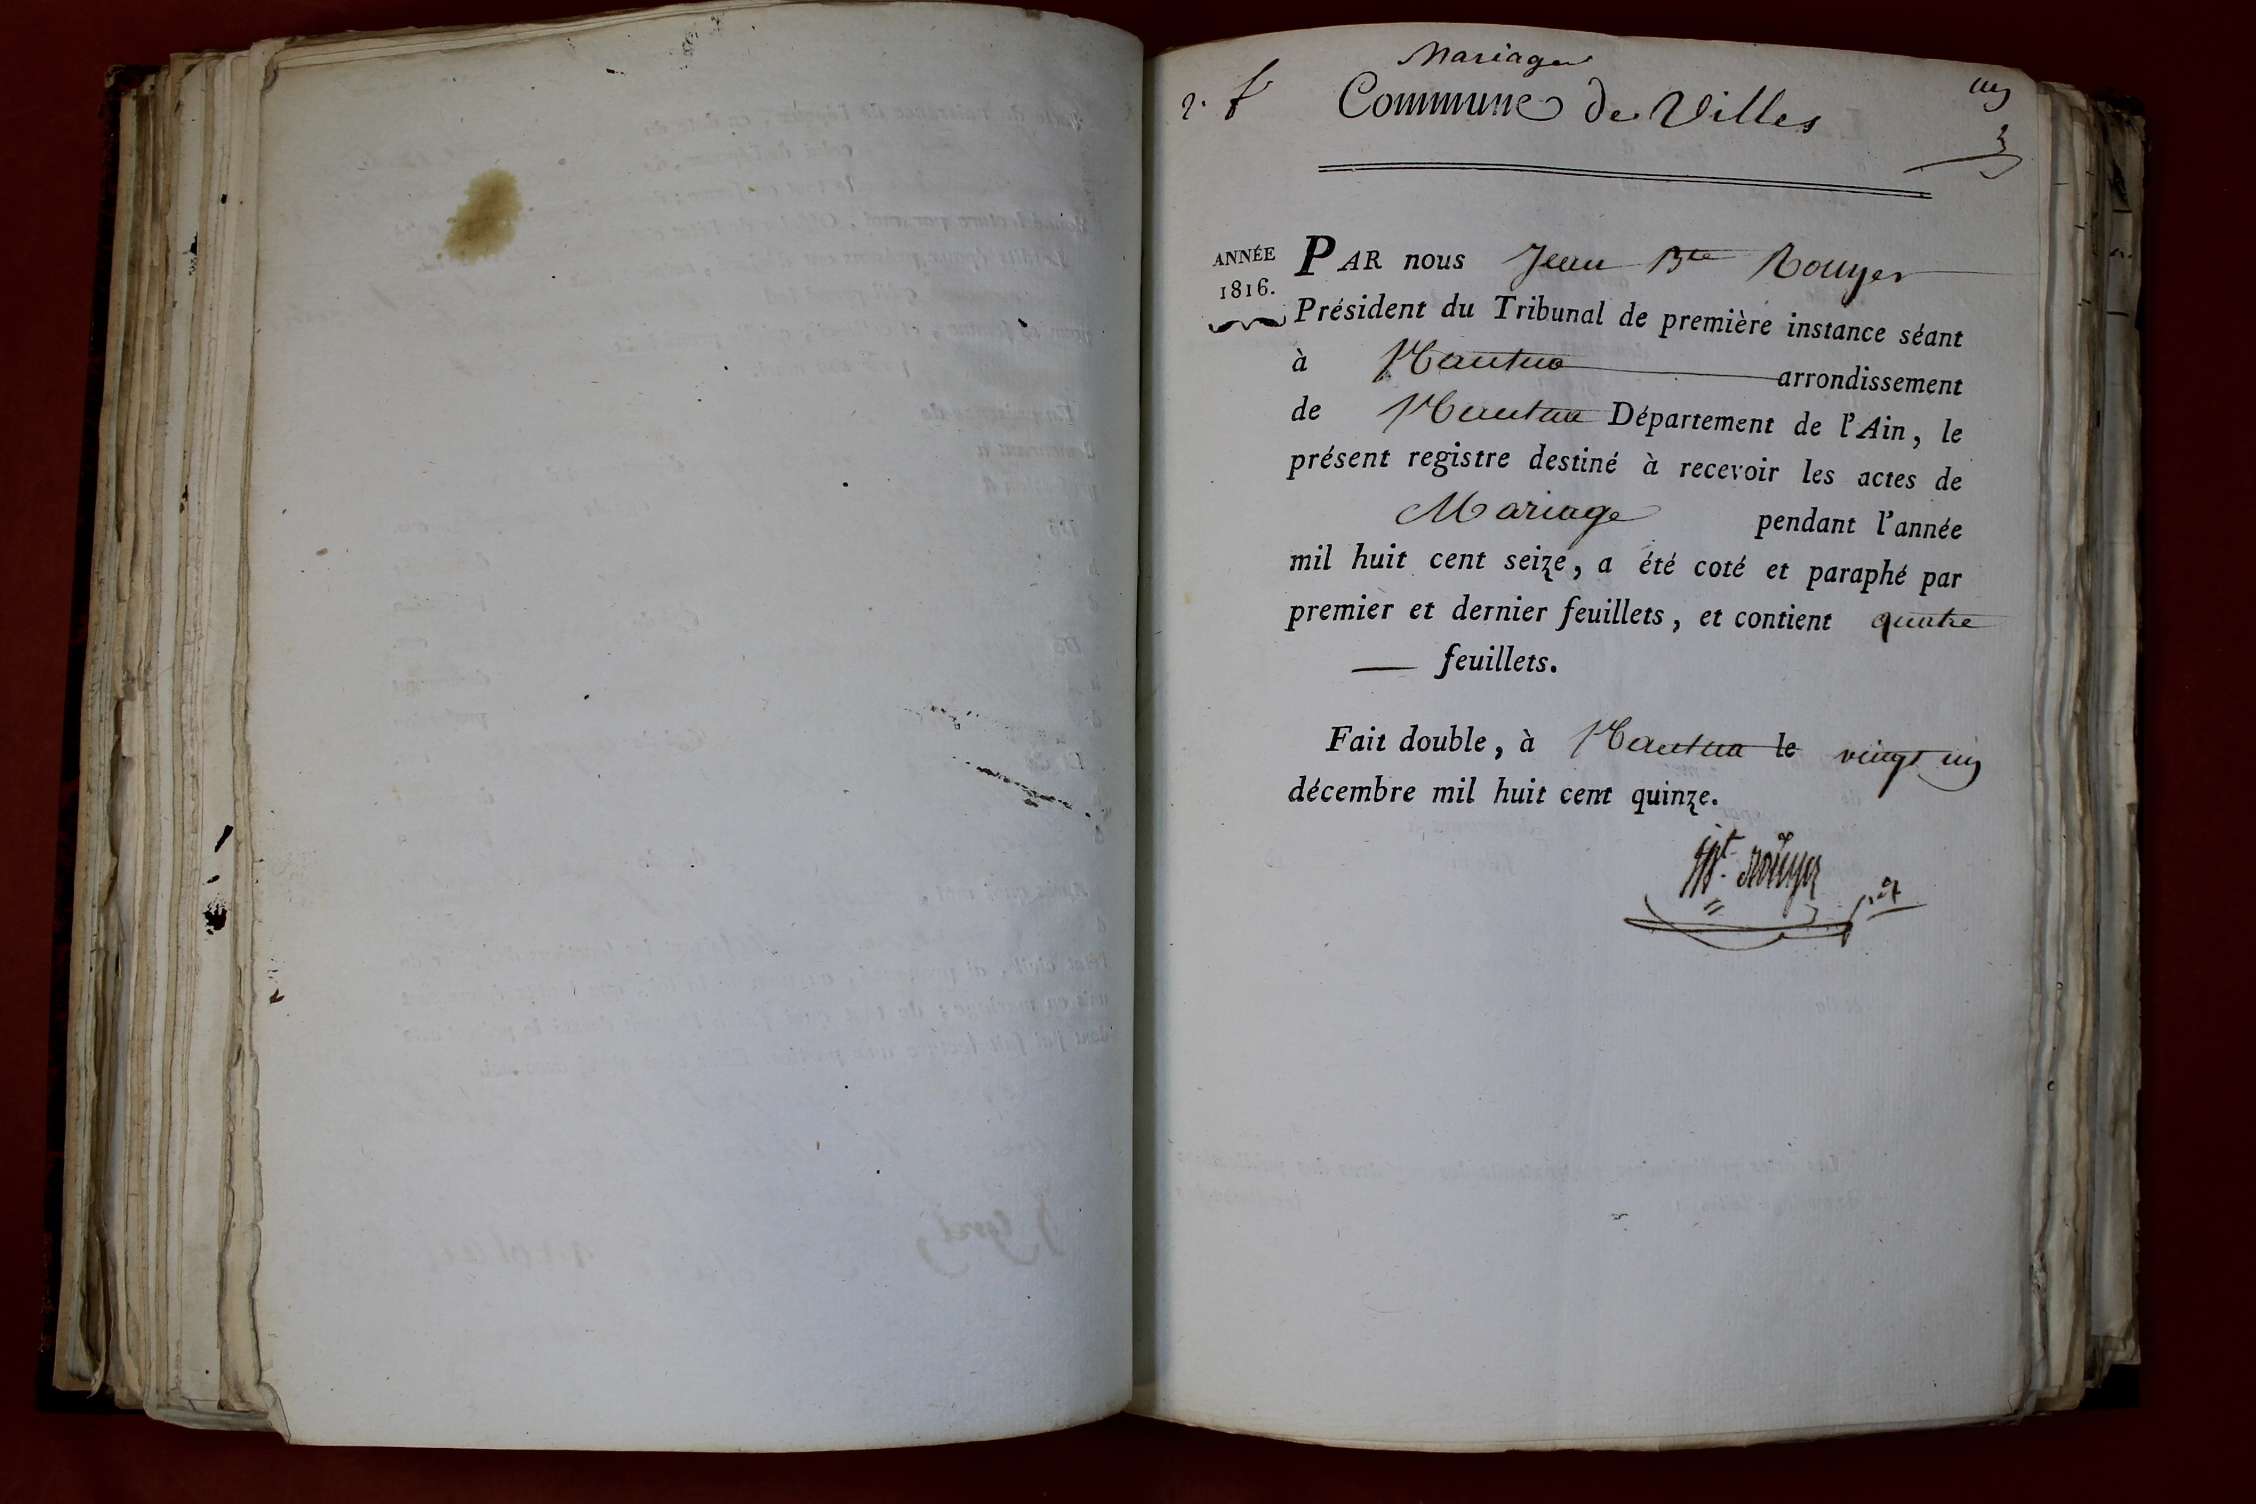 Mariage
Commune de Villes
ANNÉE
1816.
PAR nous Jean Bte Rouyer
Président du Tribunal de première instance séant
à Nantua arrondissement
de Nantua Département de l'Ain, le
présent registre destiné à recevoir les actes de
Mariage pendant l'année
mil huit cent seize, a été coté et paraphé par
premier et dernier feuillets, et contient quatre
feuillets.
Fait double, à Nantua le vingt
décembre mil huit cent quinze.
Rouyer